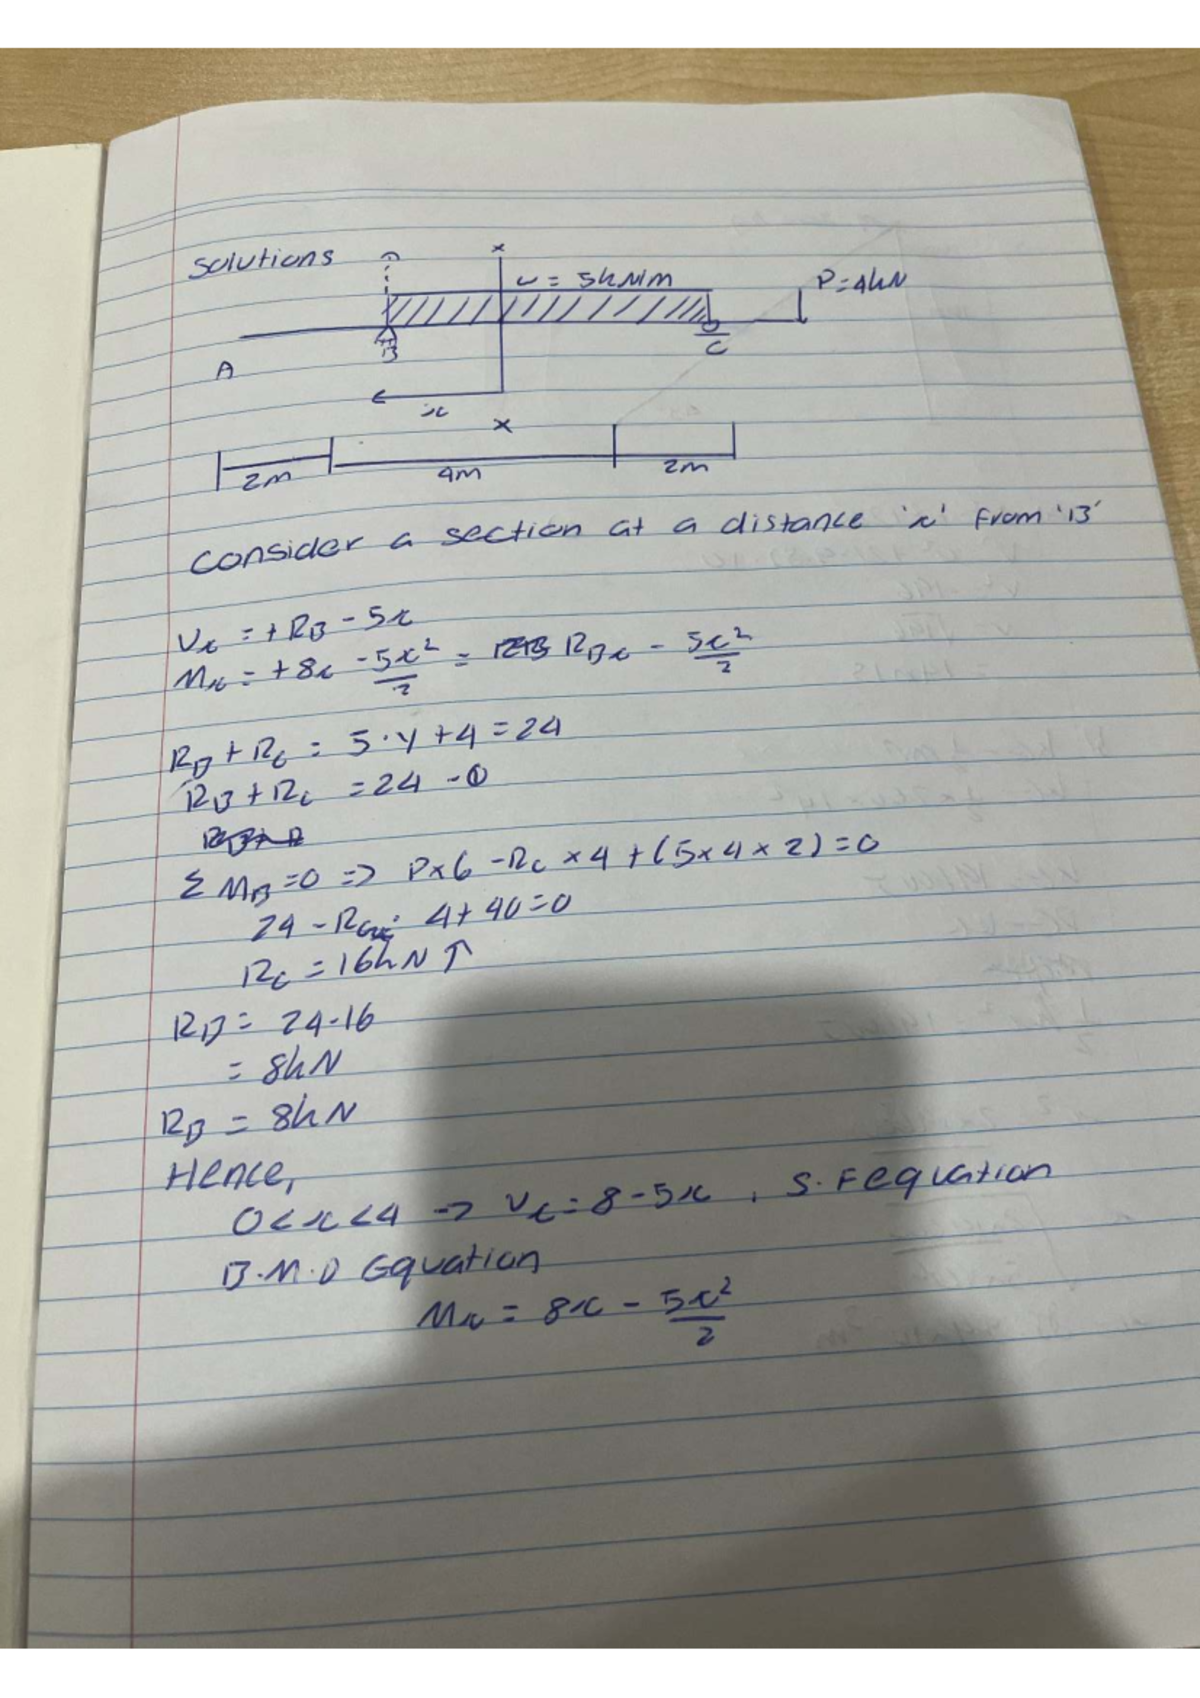 solutions
x
w = 5kN/m
P=4kN
B
C
A
x
x
2m
4m
2m
Consider a section at a distance 'x' from 'B'
Vx = + RB - 5x
Mx = +8x - 5x²/2 = RBx - 5x²/2
RB + RC = 5·4 + 4 = 24
RB + RC = 24 -①
Σ MB = 0 => P×6 - RC ×4 + (5×4×2) = 0
24 - RC · 4 + 40 = 0
RC = 16kN ↑
RB = 24-16
= 8kN
RB = 8kN
Hence,
0<x<4 → Vx = 8-5x , S.F equation
B.M.D Equation
Mx = 8x - 5x²/2